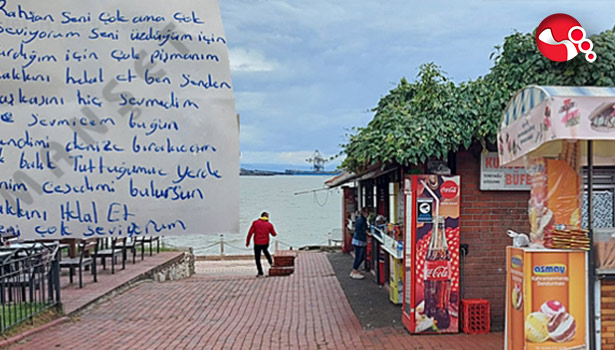 Rahşan Seni Çok ama Çok
Seviyorum Seni üzdüğüm için
için Çok pişmanım
Hakkını helal et ben Senden
başkasını hiç Sevmedim
Sevmicem bugün
Kendimi denize bırakıcam
balık Tuttuğumuz yerde
benim Cesedimi bulursun
Hakkını Helal Et
Seni Çok Seviyorum
MANŞET
Coca-Cola
Coca-Cola
BÜFE
azmay
Kahramanmaraş
Dondurması